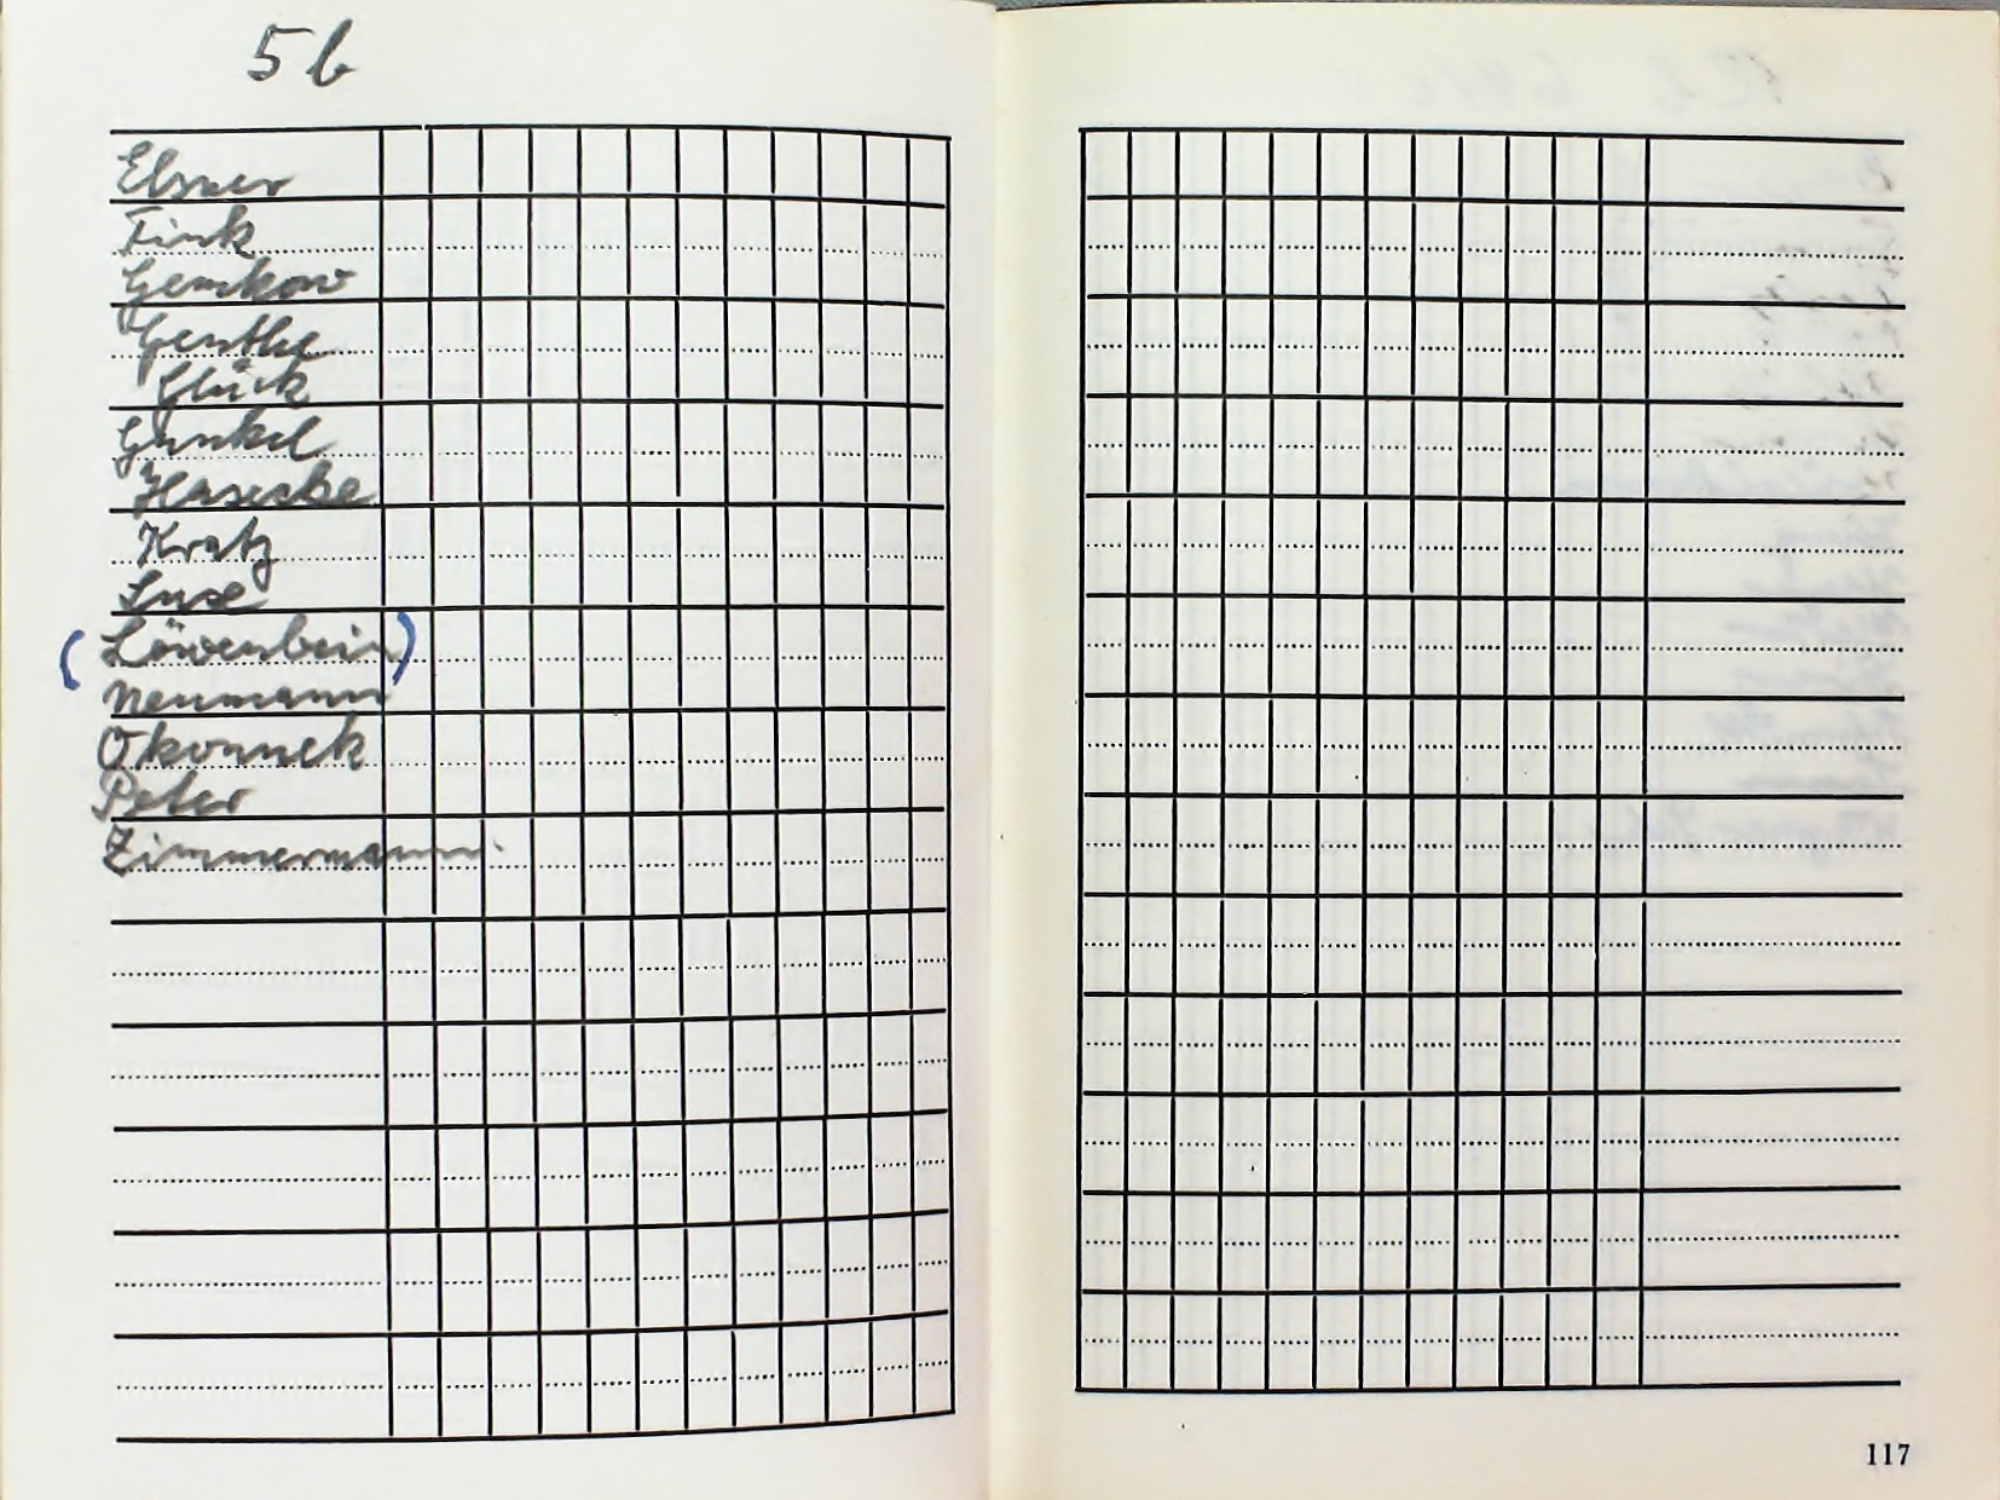 5b
Elsner
Fink
Gemkow
Genthe
Glück
Gunkel
Kratz
(Löwenbein)
Neumann
Okonnek
Peter
Zimmermann.
117